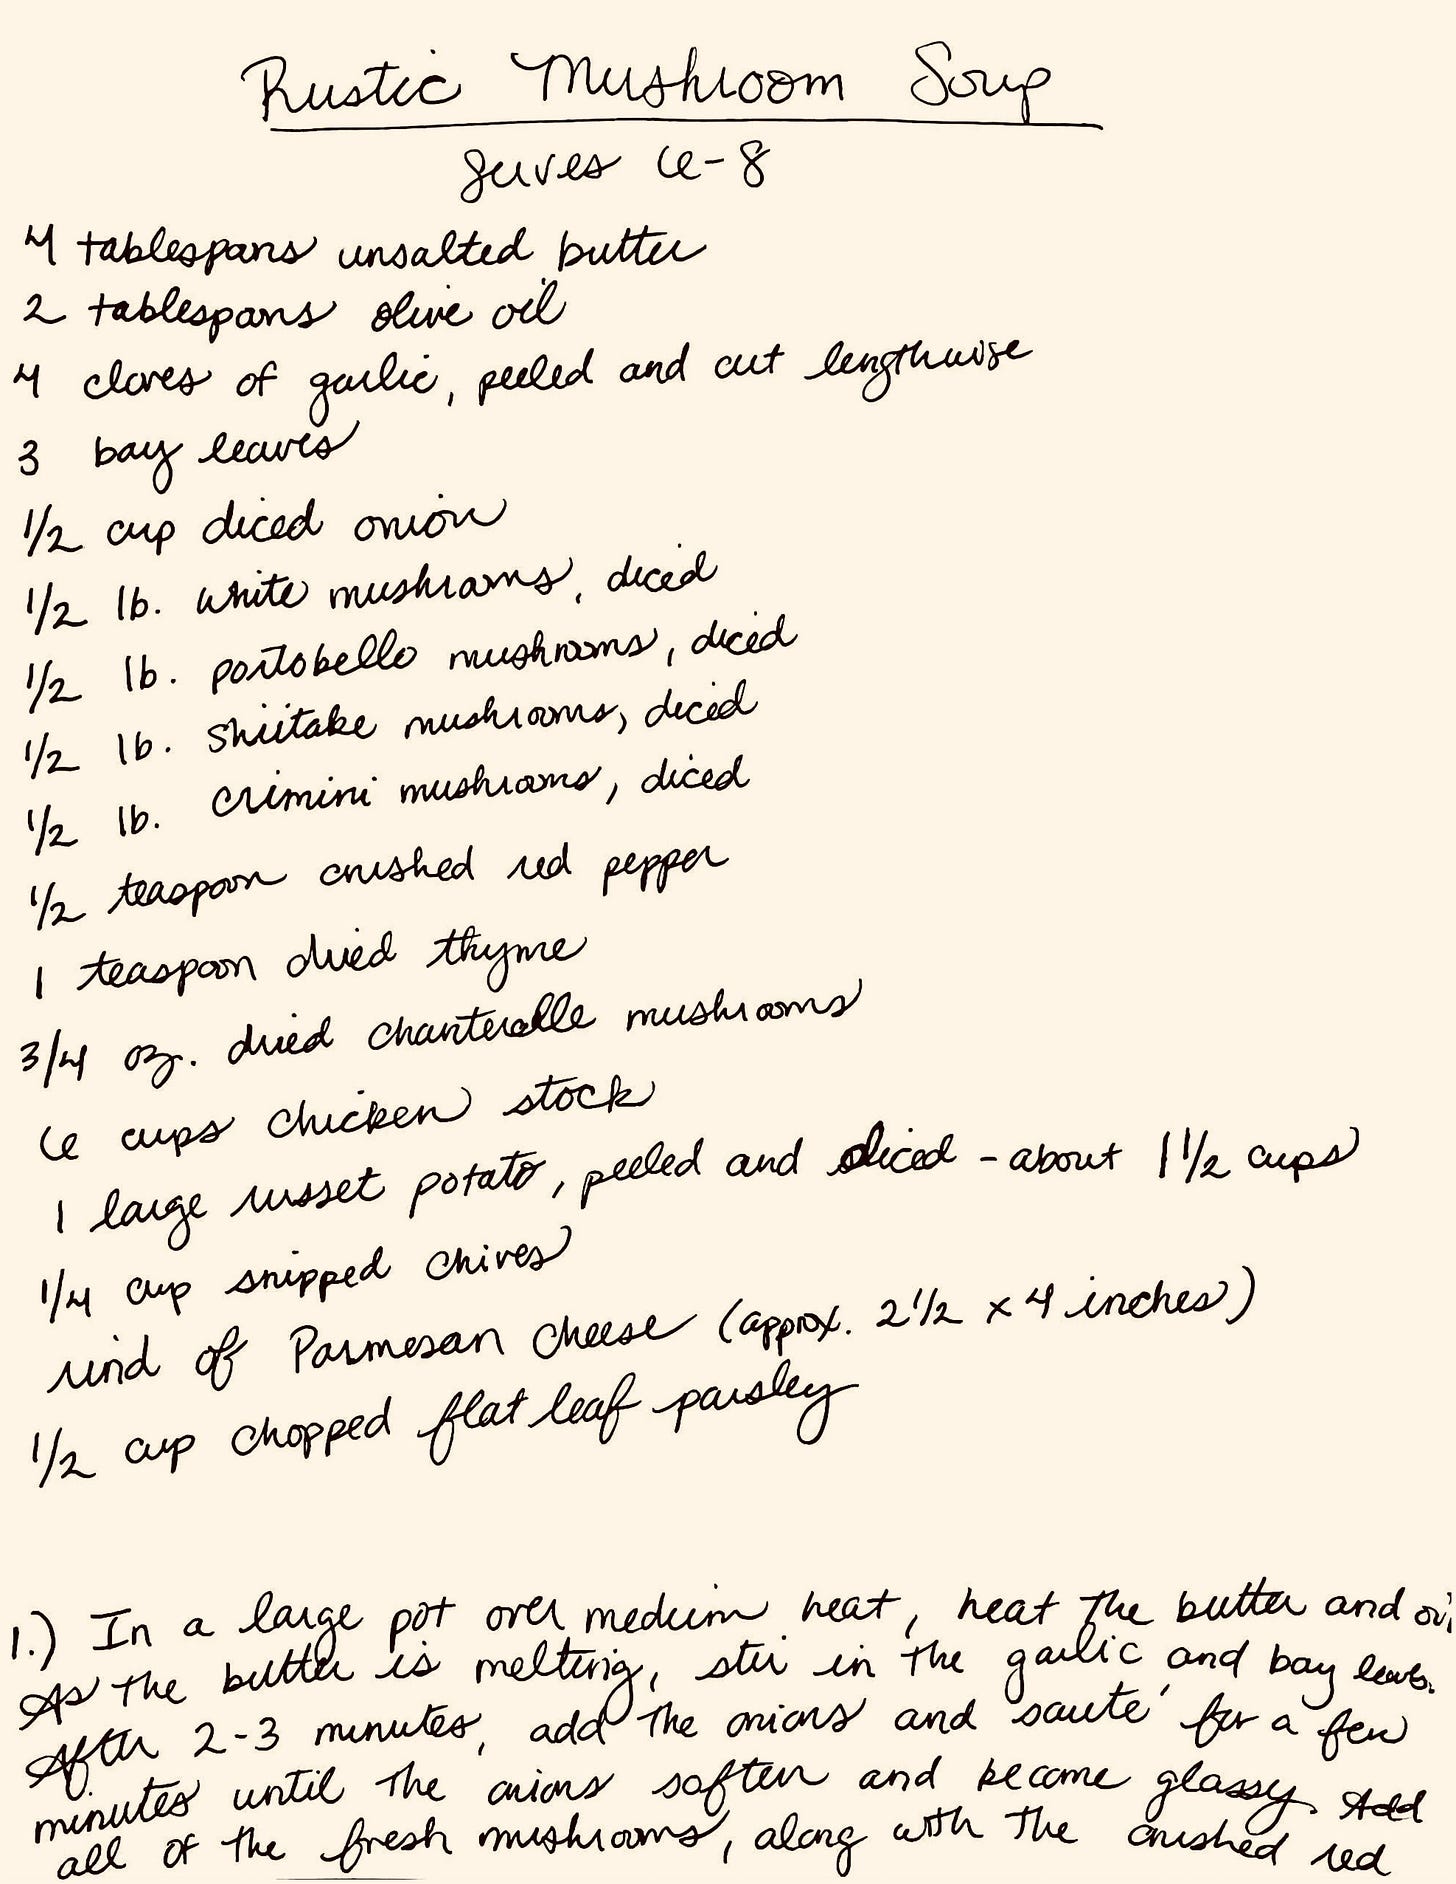 Rustic Mushroom Soup
Serves 6-8
4 tablespoons unsalted butter
2 tablespoons olive oil
4 cloves of garlic, peeled and cut lengthwise
3 bay leaves
1/2 cup diced onion
1/2 lb. white mushrooms, diced
1/2 lb. portobello mushrooms, diced
1/2 lb. shiitake mushrooms, diced
1/2 lb. crimini mushrooms, diced
1/2 teaspoon crushed red pepper
1 teaspoon dried thyme
3/4 oz. dried chanterelle mushrooms
6 cups chicken stock
1 large russet potato, peeled and diced - about 1 1/2 cups
1/4 cup snipped chives
rind of Parmesan cheese (approx. 2 1/2 x 4 inches)
1/2 cup chopped flat leaf parsley
1.) In a large pot over medium heat, heat the butter and oi
As the butter is melting, stir in the garlic and bay leaves.
After 2-3 minutes, add the onions and sauté for a few
minutes until the onions soften and become glassy. Add
all of the fresh mushrooms, along with the crushed red